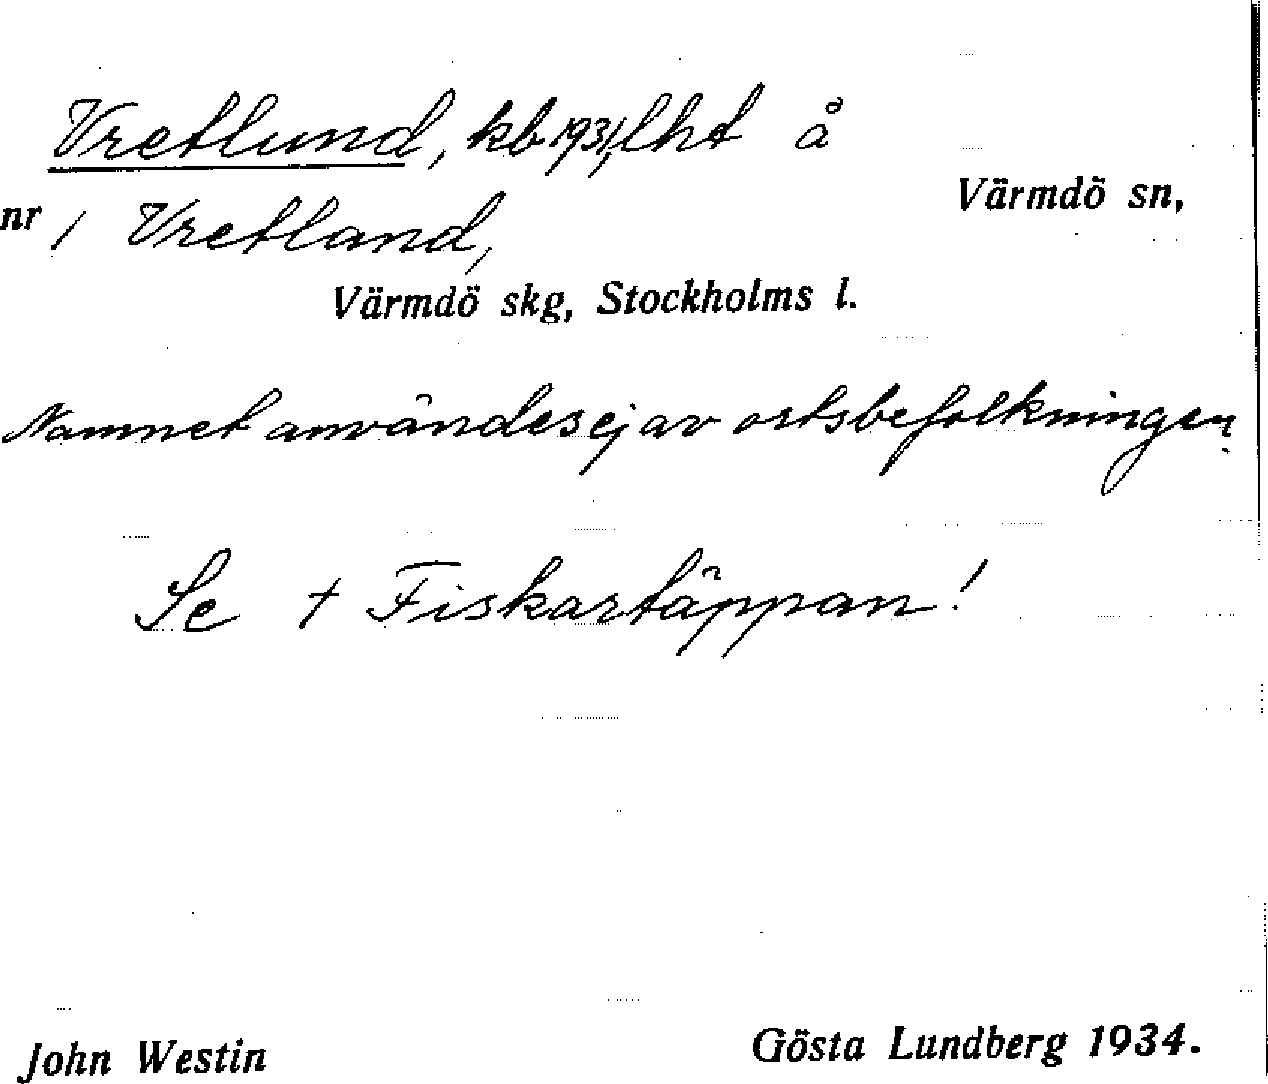 Vretlund, kb 1931, lht å
nr 1 Vretland,
Värmdö sn,
Värmdö skg, Stockholms l.
Namnet användes ej av ortsbefolkningen.
Se † Fiskartäppan!
John Westin
Gösta Lundberg 1934.